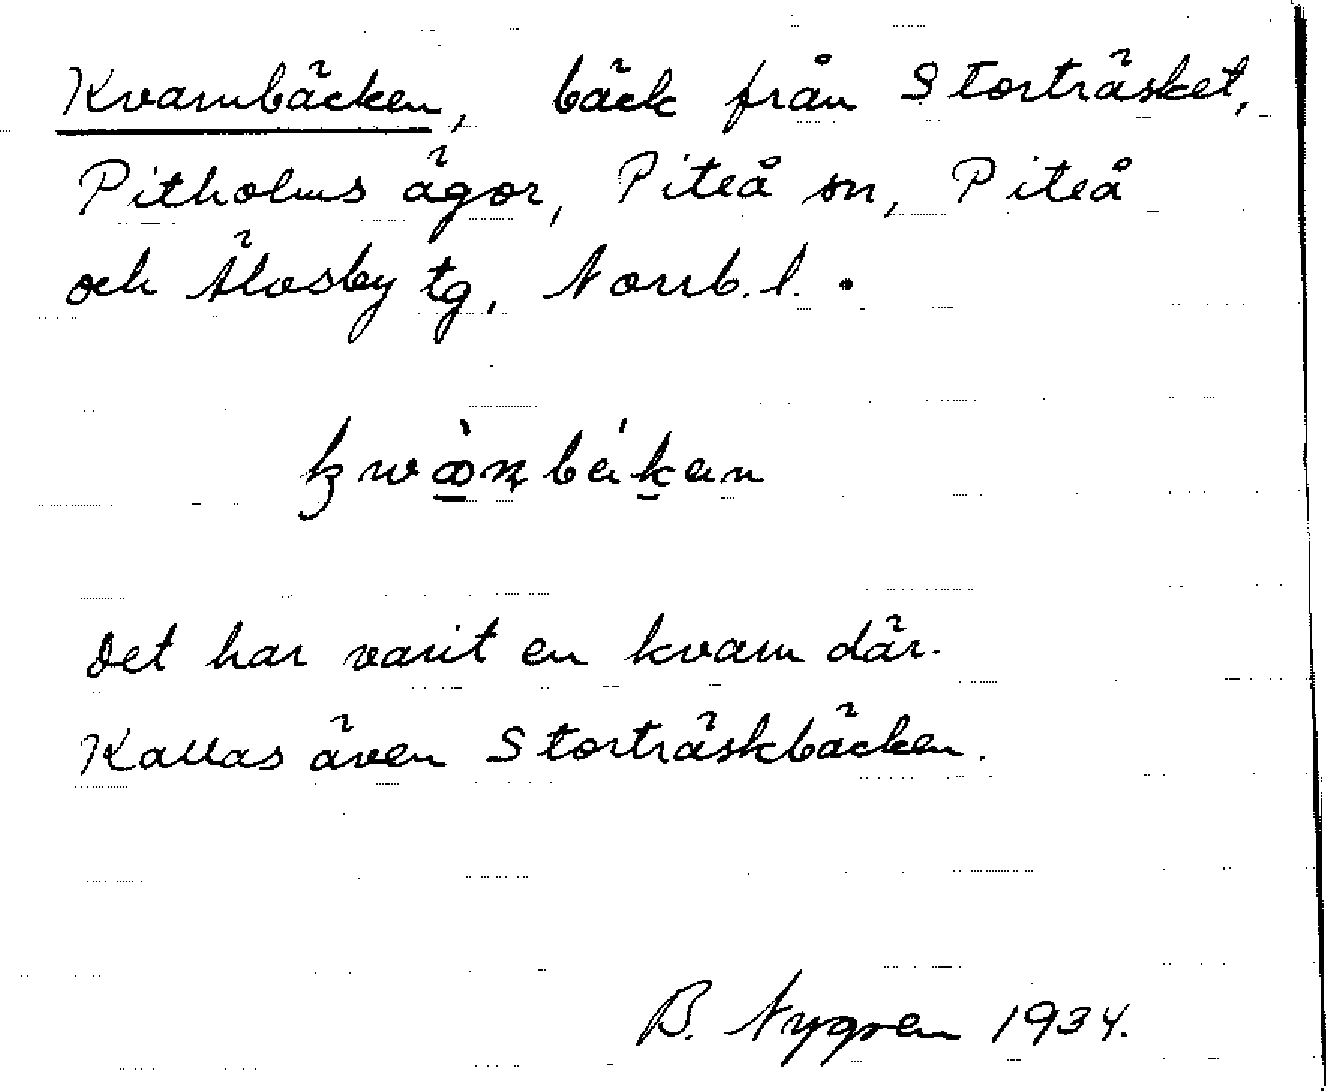 Kvarnbäcken, bäck från Storträsket,
Pitholms ägor, Piteå sn, Piteå
och Älvsby tg, Norrb. l.
Det har varit en kvarn där.
Kallas även Storträskbäcken.
B. Nygren 1934.